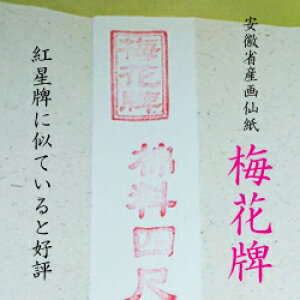 安徽省産画仙紙
梅花牌
梅花牌
棉料四尺
紅星牌に似ていると好評